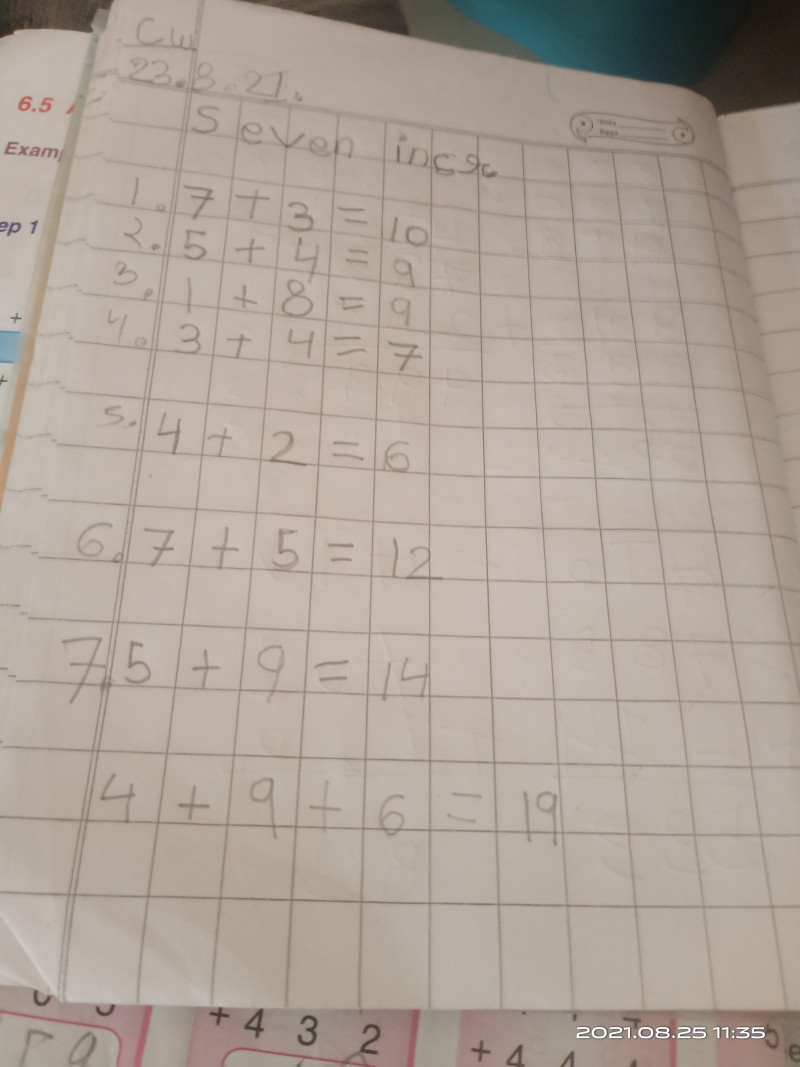 CW
23.8.21.
6.5
Seven
Exam
ep 1
1. 7 + 3 = 10
2. 5 + 4 = 9
3. 1 + 8 = 9
4. 3 + 4 = 7
5. 4 + 2 = 6
6. 7 + 5 = 12
7. 5 + 9 = 14
4 + 9 + 6 = 19
+ 4 3 2
+ 4
2021.08.25 11:35